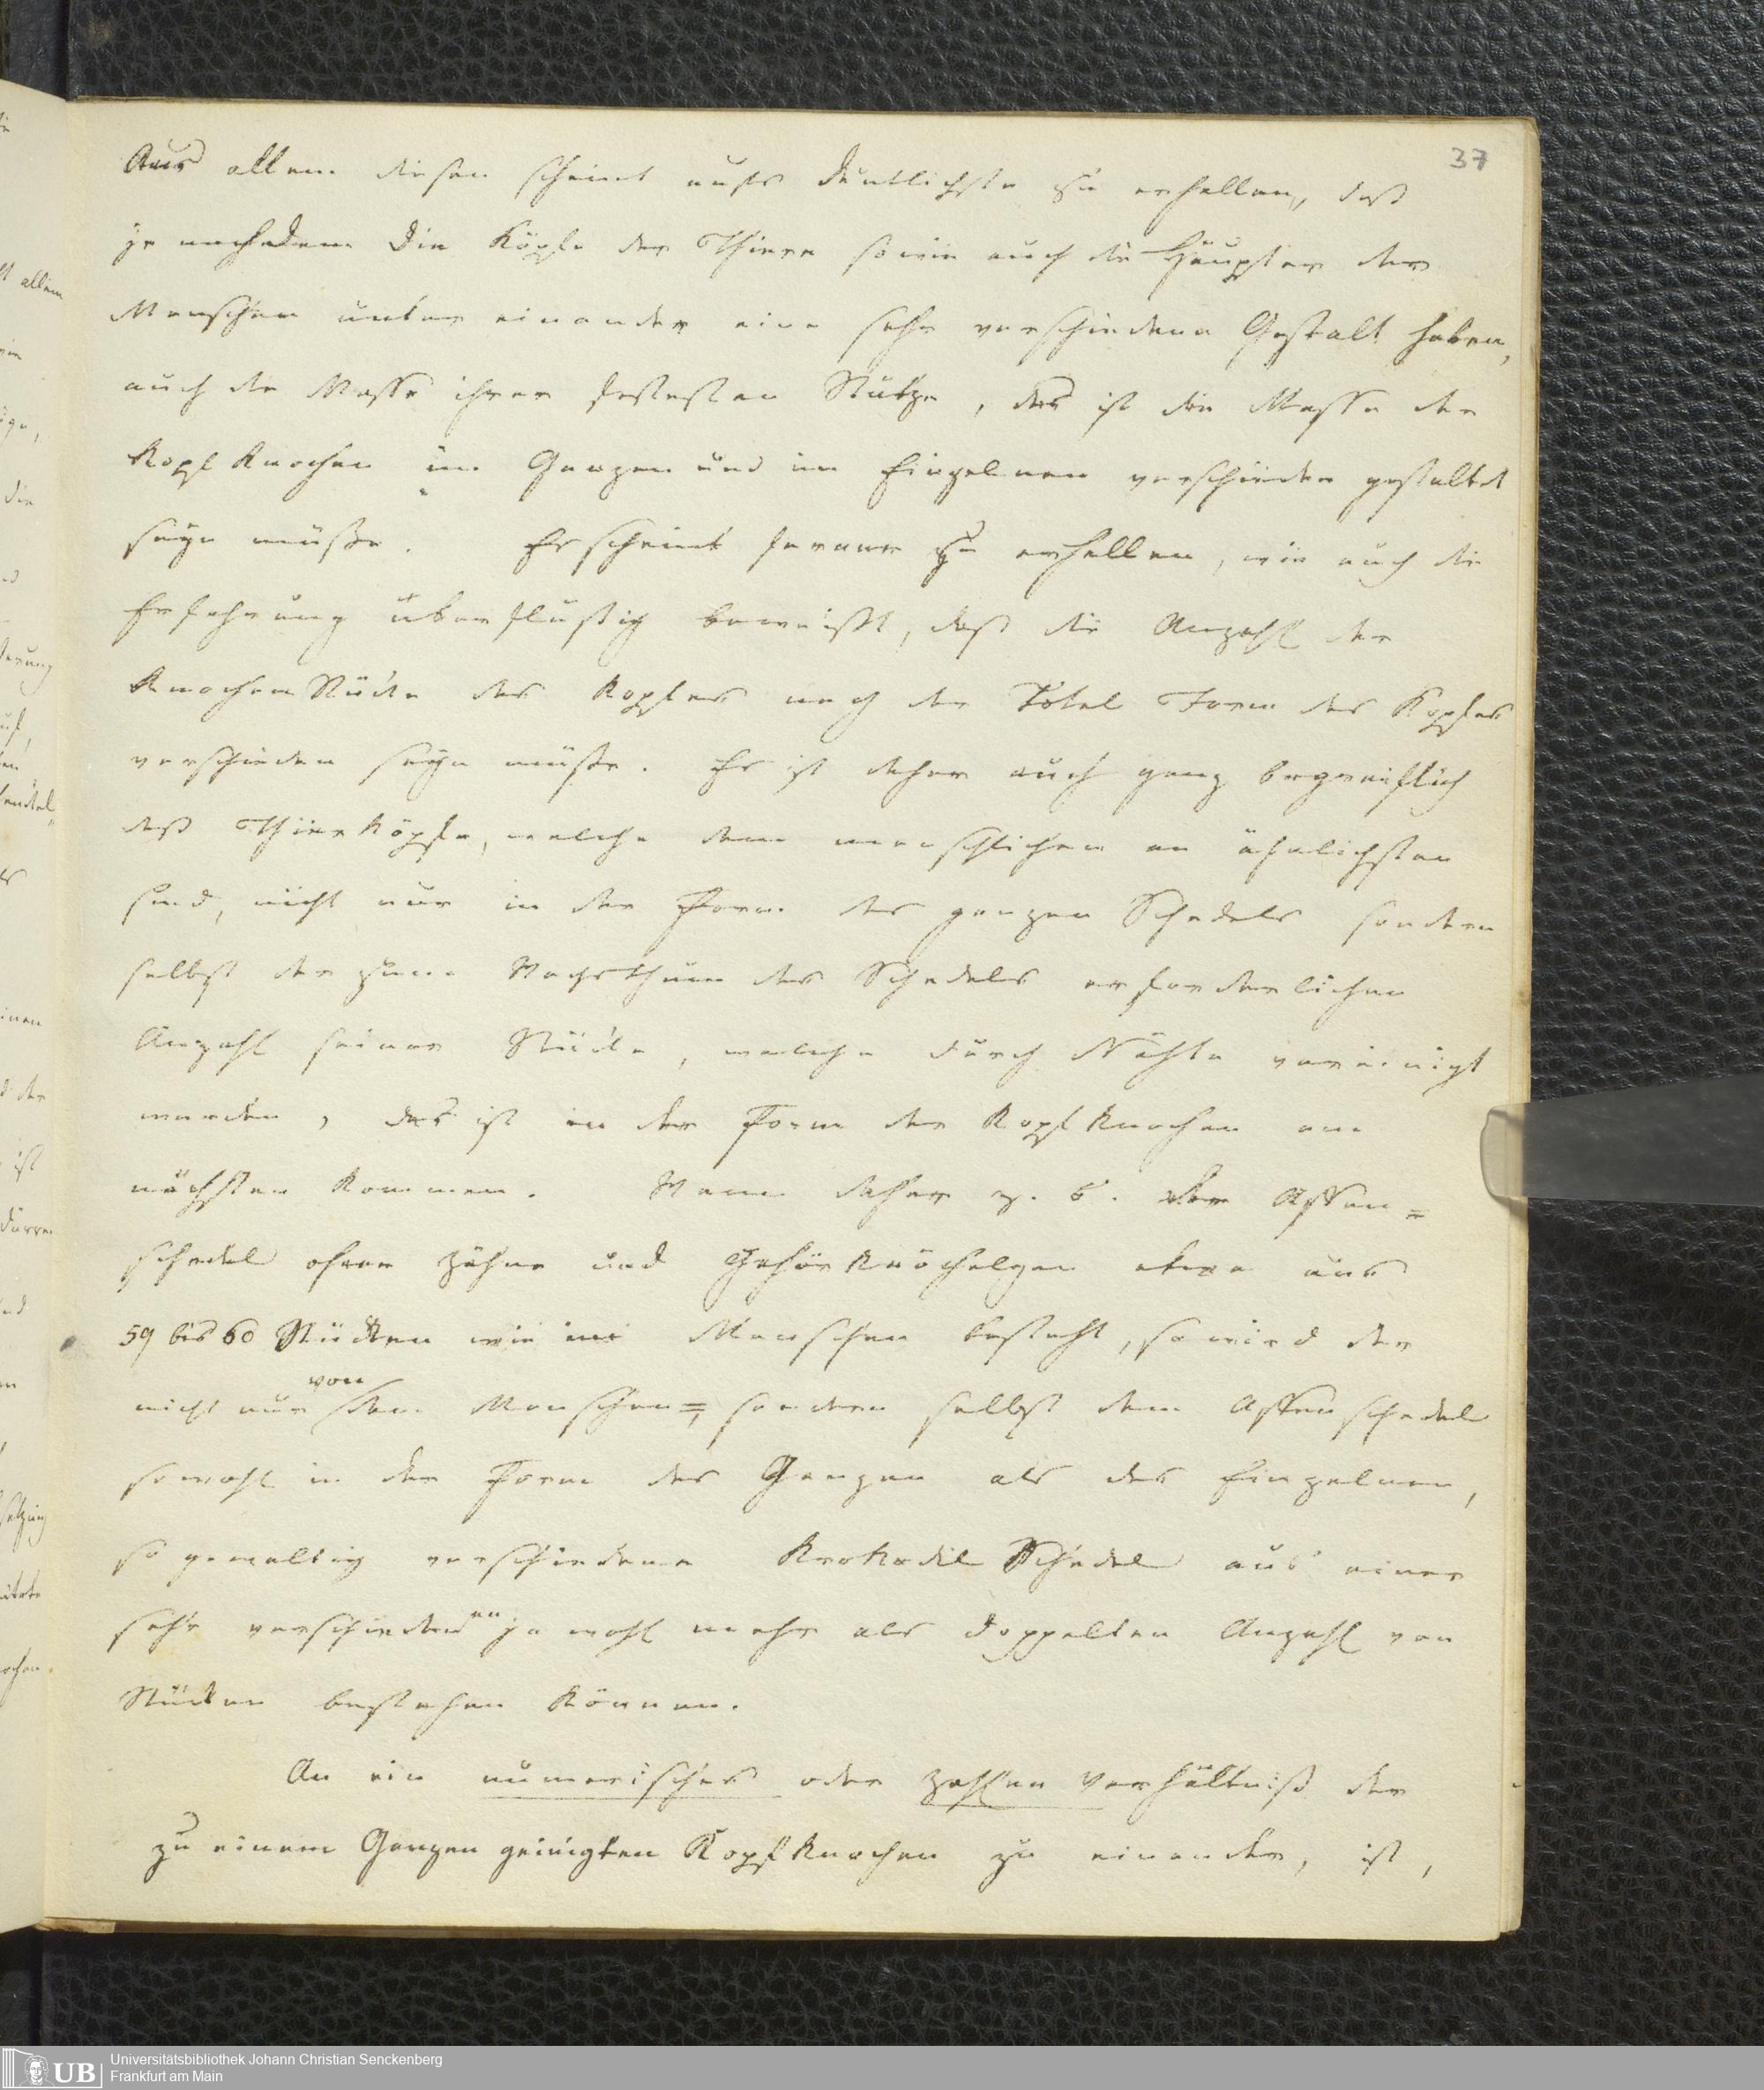 37
Aus allem diesen scheint aufs deutlichste zu erhellen, daß
je nachdem die Köpfe der Thiere sowie auch die Häupter der
Menschen unter einander eine sehr verschiedene Gestalt haben,
auch die Masse ihrer festesten Stütze, das ist die Masse der
Kopf Knochen im Ganzen und im Einzelnen verschieden gestaltet
seyn müsse. Es scheint ferner zu erhellen, wie auch die
Erfahrung überflüßig beweißt, daß die Anzahl der
KnochenStücke des Kopfes nach der Total Form des Kopfes
verschieden seyn müsse. Es ist daher auch ganz begreiflich
daß Thierköpfe, welche dem menschlichen am ähnlichsten
sind, nicht nur in der Form des ganzen Schedels sondern
selbst der zum Wachsthum des Schedels erforderlichen
Anzahl seiner Stücke, welche durch Nähte vereinigt
werden, das ist in der Form der Kopf Knochen am
nächsten kommen. Wenn daher z. B. der Affen=
schedel ohne Zähne und Gehörknöchelgen etwa aus
59 bis 60 Stücken wie im Menschen besteht, so wird der
nicht nur von dem Menschen=, sondern selbst dem Affenschedel
sowohl in der Form des Ganzen als des Einzelnen,
so gewaltig verschiedene Krokodil Schedel aus einer
sehr verschiedenen ja wohl mehr als doppelten Anzahl von
Stücken bestehen können.
An ein numerisches oder Zahlen Verhältniß der
zu einem Ganzen geeinigten Kopf Knochen zu einander, ist,
UB
Universitätsbibliothek Johann Christian Senckenberg
Frankfurt am Main